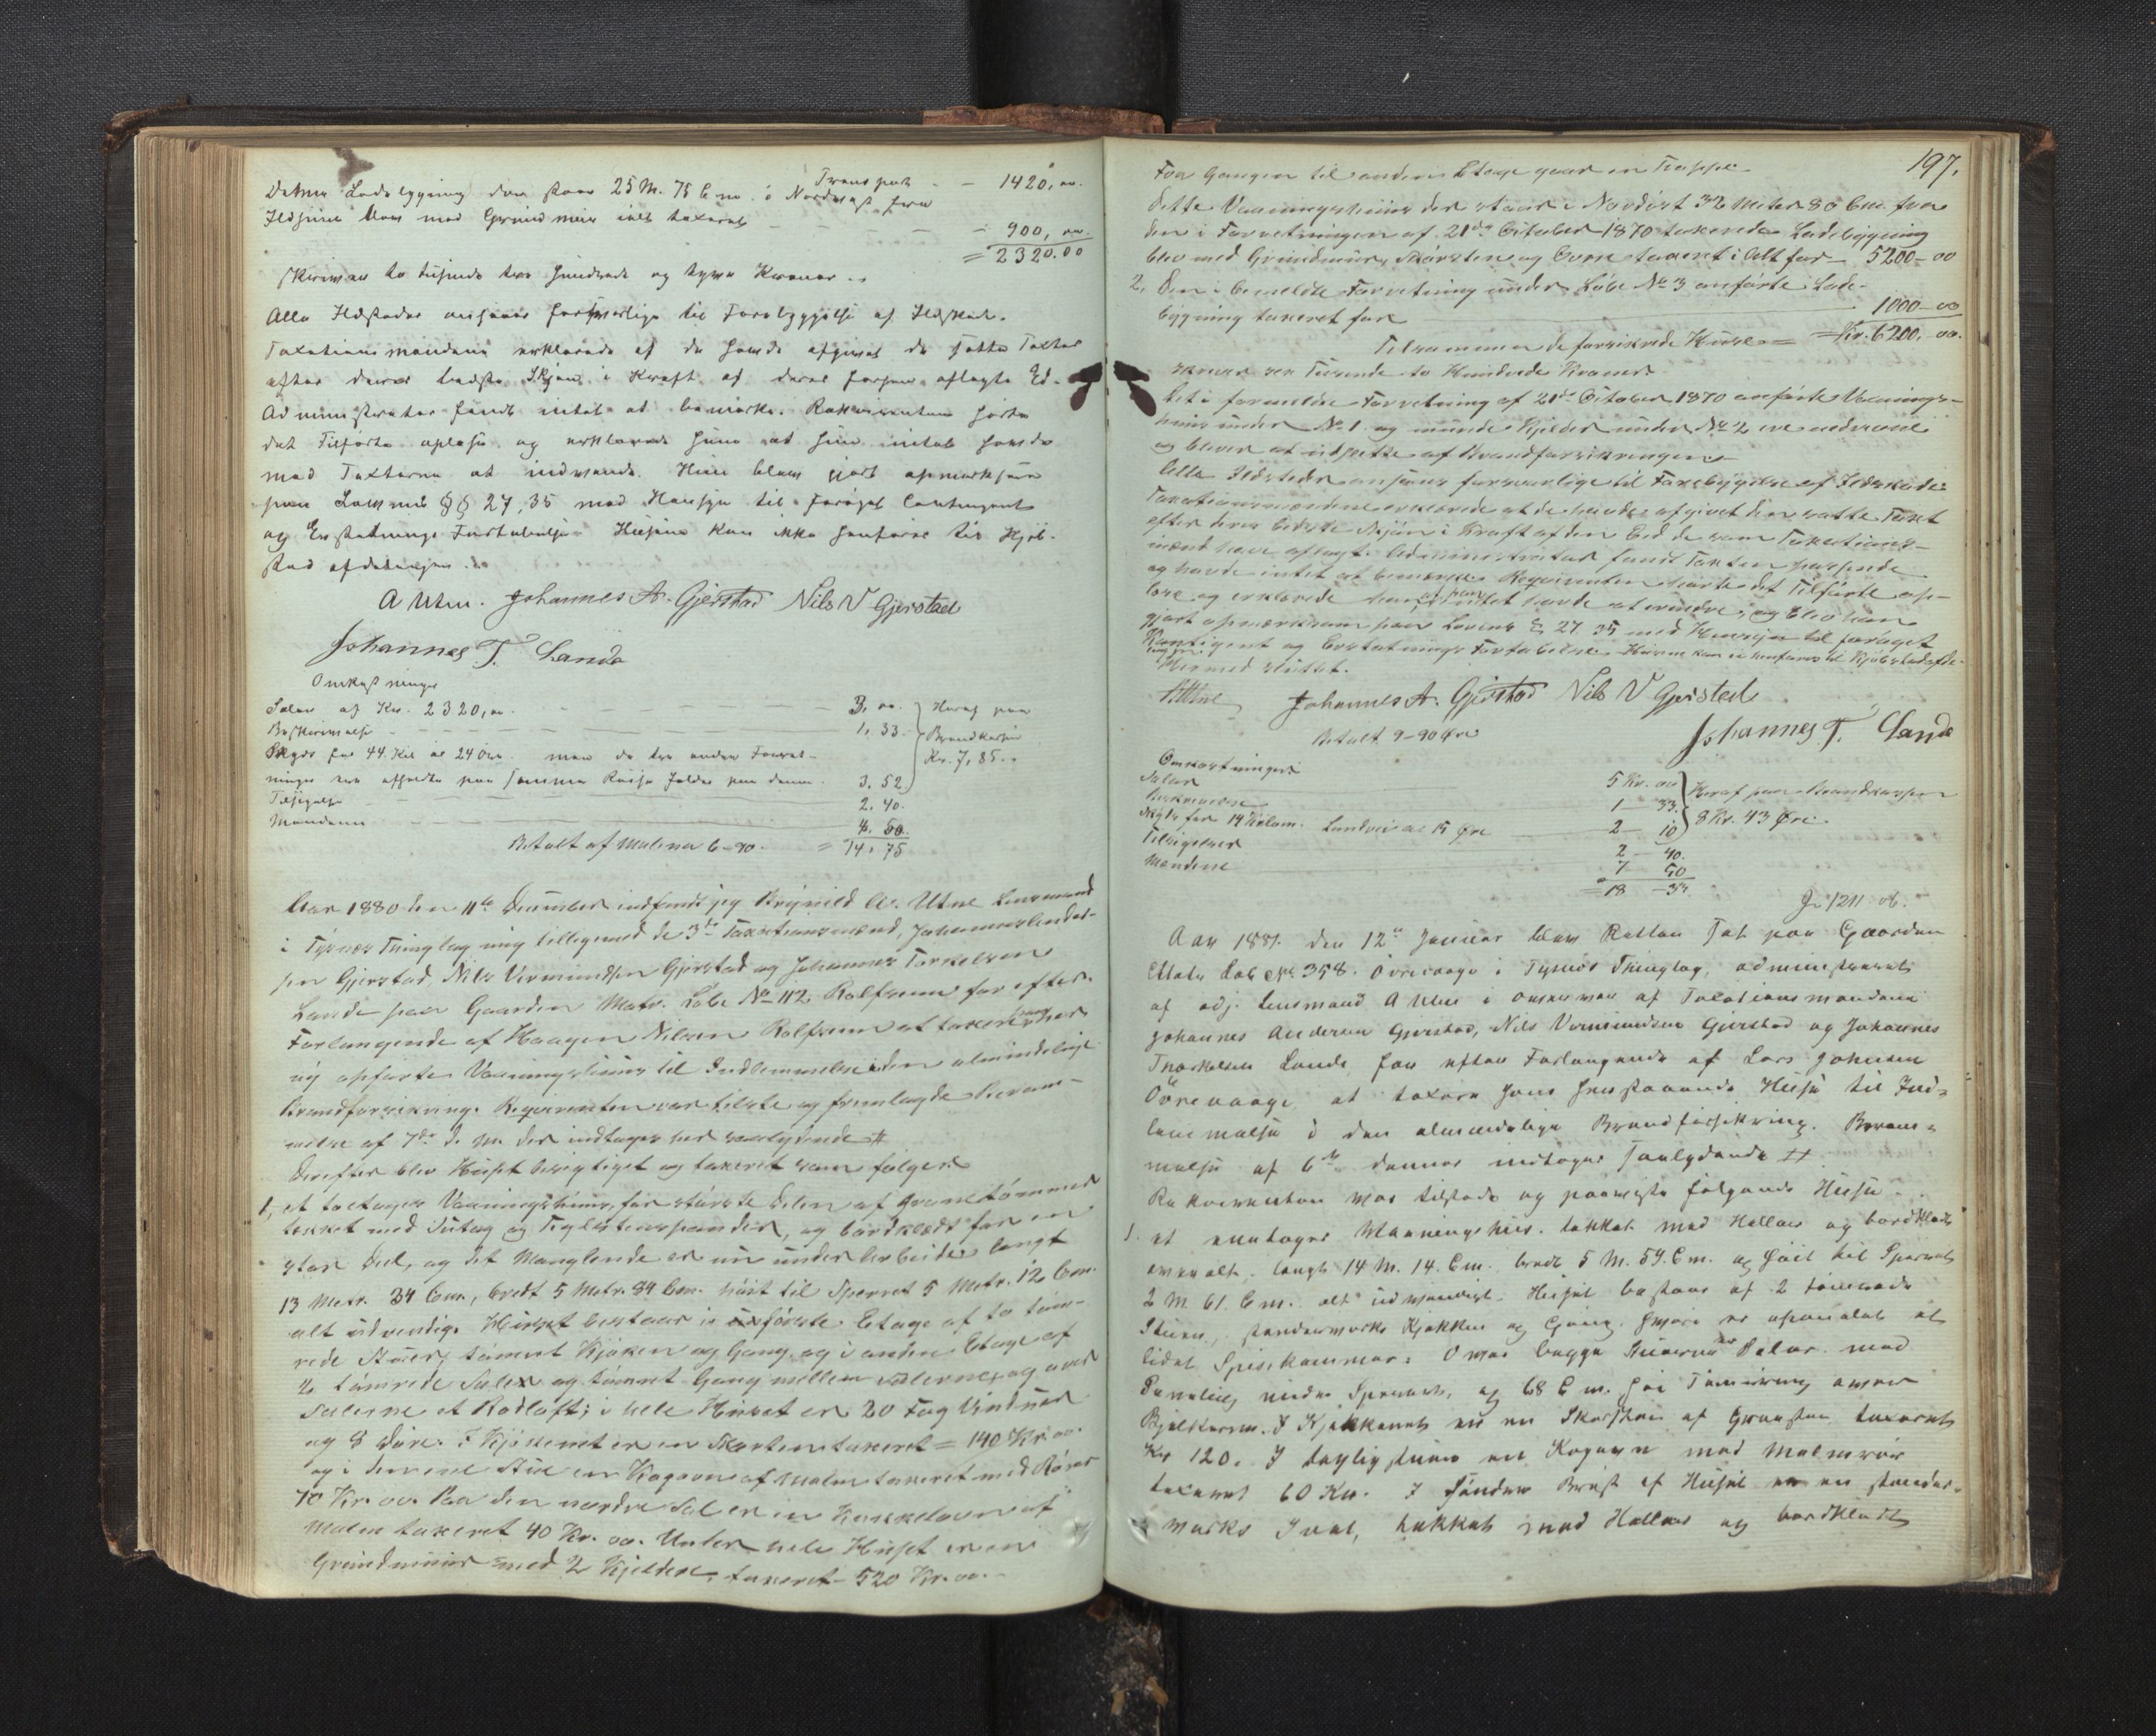 Transport - - 1420, oo.
Denne Ladebygning der staar 25 M. 75 Cm. i Nordvest fra
Ildhuset blev med Grundmur ialt taxeret - - - 900, oo.
= 2320.00
Skriver to tusinde tre hundrede og tyve Kroner.
Alle Ildsteder ansees forsvarlige til Forebyggelse af Ildskade.
Taxationsmændene erklærede at de havde afgivet de satte Taxter
efter deres bedste Skjøn i Kraft af deres forhen aflagte Ed.
Administrator fandt intet at bemærke. Rekvirentinden hørte
det Tilførte oplæse og erklærede hun at hun intet havde
mod Taxterne at indvende. Hun blev gjort opmærksom
paa Lovens §§ 27, 35 med Hensyn til forøget Contingent
og Erstatnings Fortabelse. Husene kan ikke henføres til Kjøb-
stad afdelingen.
A Utne. Johannes A. Gjerstad Nils V Gjerstad
Johannes T. Lande
Omkostninger
Salær af Kr. 2320, oo. - - - 3, oo. Heraf paa
Beskrivelse - - - 1, 33. Brandkassen
Skyds for 44. Kil a 24 Øre. men da tre andre Forret- Kr. 7, 85.
ninger er afholdte paa samme Reise falder paa denne 3. 52
Tilsigelse - - - 2. 40.
Mændene - - - 4. 50.
Betalt af Malena 6-90. = 14, 75
Aar 1880 den 11te December indfandt jeg Brynild A. Utne Lensmand
i Tysnæs Thinglag mig tilligemed de 3de Taxationsmænd, Johannes Anders-
sen Gjerstad, Nils Vermundsen Gjerstad og Johannes Torkelsen
Lande paa Gaarden Matr. Løbe No 112 Rolfsvaag for efter
Forlangende af Haagen Nilsen Rolfsvaag at taxere hans her
ny opførte Vaaningshuus til Indlemmelse i den almindelige
Brandforsikring. Reqvirenten var tilstede og fremlagde Beram-
melse af 7de d. M. der indtages her saalydende #
Derefter blev Huset besigtiget og taxeret som følger.
1, et toetages Vaaningshuus, for største Delen af Grantømmer
tækket med Sutag og Teglsteenspander, og bordklædt for en
stor Deel, og det Manglende er nu under Arbeide. langt
13 Metr. 34 Cm., bredt 5 Metr. 84 Cm. høit til Sperret 5 Metr. 12 Cm.
alt udvendig. Huset bestaar i første Etage af to tøm-
rede Stuer, tømret Kjøken og Gang, og i anden Etage af
2 tømrede Sale og tømret Gang mellem Salerne, og over
Salerne et Rodloft; i hele Huset er 20 Fag Vinduer
og 8 Døre. I Kjøkenet er en Skorsten taxeret = 140 Kr. oo.
og i den ene Stue en Kogovn af Malm taxeret med Rører
70 Kr. oo. Paa den nordre Sal er en Kakkelovn af
Malm taxeret 40 Kr. oo. Under hele Huset er en
Grundmuur med 2 Kjeldere, taxeret 520 Kr. oo.
197.
Fra Gangen til anden Etage gaar en Trappe.
Dette Vaaningshuus der staar i Nordøst 32 Meter 80 Cm. fra
den i Forretningen af 21de October 1870 taxerede Ladebygning
blev med Grundmur, Skorsten og Ovne taxeret i Alt for 5200-00
2, Den i bemeldte Forretning under Løbe No 3 anførte Lade-
bygning taxeret for 1000-00
Tilsammen de forsikrede Huse = Kr. 6200, 00.
skriver sex Tusende to Hundrede Kroner.
Det i formeldte Forretning af 21de October 1870 anførte Vaanings-
huus under No 1. og Kjelder under No 2 ere nedrevne
og bliver at udslette af Brandforsikringen.
Alle Ildsteder ansees forsvarlige til Forebyggelse af Ildskade.
Taxationsmændene erklærede at de havde afgivet den satte Taxt
efter deres bedste Skjøn i Kraft af den Eed de som Taxations-
mænd have aflagt. Administrator fandt Taxten passende
og havde intet at bemærke. Reqvirenten hørte det Tilførte op-
læse og erklærede at han intet havde at erindre, og blev han
gjort opmærksom paa Lovens § 27. 35 med Hensyn til forøget
Kontigent og Erstatnings Fortabelse. Husene kan ei henføres til Kjøbstadafde-
lingen.
Hermed sluttet.
A Utne Johannes A. Gjerstad Nils V Gjerstad
Betalt 9-90 Øre Johannes T. Lande
Omkostninger
Salær 5 Kr. oo Heraf paa Brandkassen
Beskrivelse 1 - 33. 8 Kr. 43 Øre.
Skyds for 14 Kilom. Landvei a 15 Øre 2 - 10
Tilsigelser 2 - 40.
Mændene 7 50
= 18 - 33.
J. 1211 ob.
Aar 1881. den 12te Januar blev Retten sat paa Gaarden
Matr Løb No. 358. Øvrevaage i Tysnæs Thinglag, administreret
af adj. Lensmand A Utne i Overvær af Taxationsmændene
Johannes Andersen Gjerstad, Nils Vermundsen Gjerstad og Johannes
Thorkelsen Lande for efter Forlangende af Lars Johnsen
Øvrevaage at taxere hans henstaaende Huse til Ind-
lemmelse i den almindelige Brandforsikring. Beram-
melse af 6te dennes indtages saalydende #
Rekvirenten var tilstede og paaviste følgende Huse.
1. et eenetages Vaaningshus. tækket med Heller og bordklædt
overalt. langt 14 M. 14. Cm. bredt 5 M. 59. Cm. og høit til Sperret
2 M 61. Cm. alt udvendigt. Huset bestaar af 2 tømrede
Stuer, standerværks Kjøkken og Gang. hvori er afpanelet et
lidet Spisekammer. Over begge Stuerne er Salar med
Paneling under Sperret, og 68 Cm. høi Tømring over
Bjelkerne. I Kjøkkenet er en Skorsten af Graasten taxeret
Kr 120. I Dagligstuen en Kogovn med Malmrør
taxeret 60 Kr. I søndre Brøst af Huset er en stander-
værks Sval, tækket med Heller og bordklædt